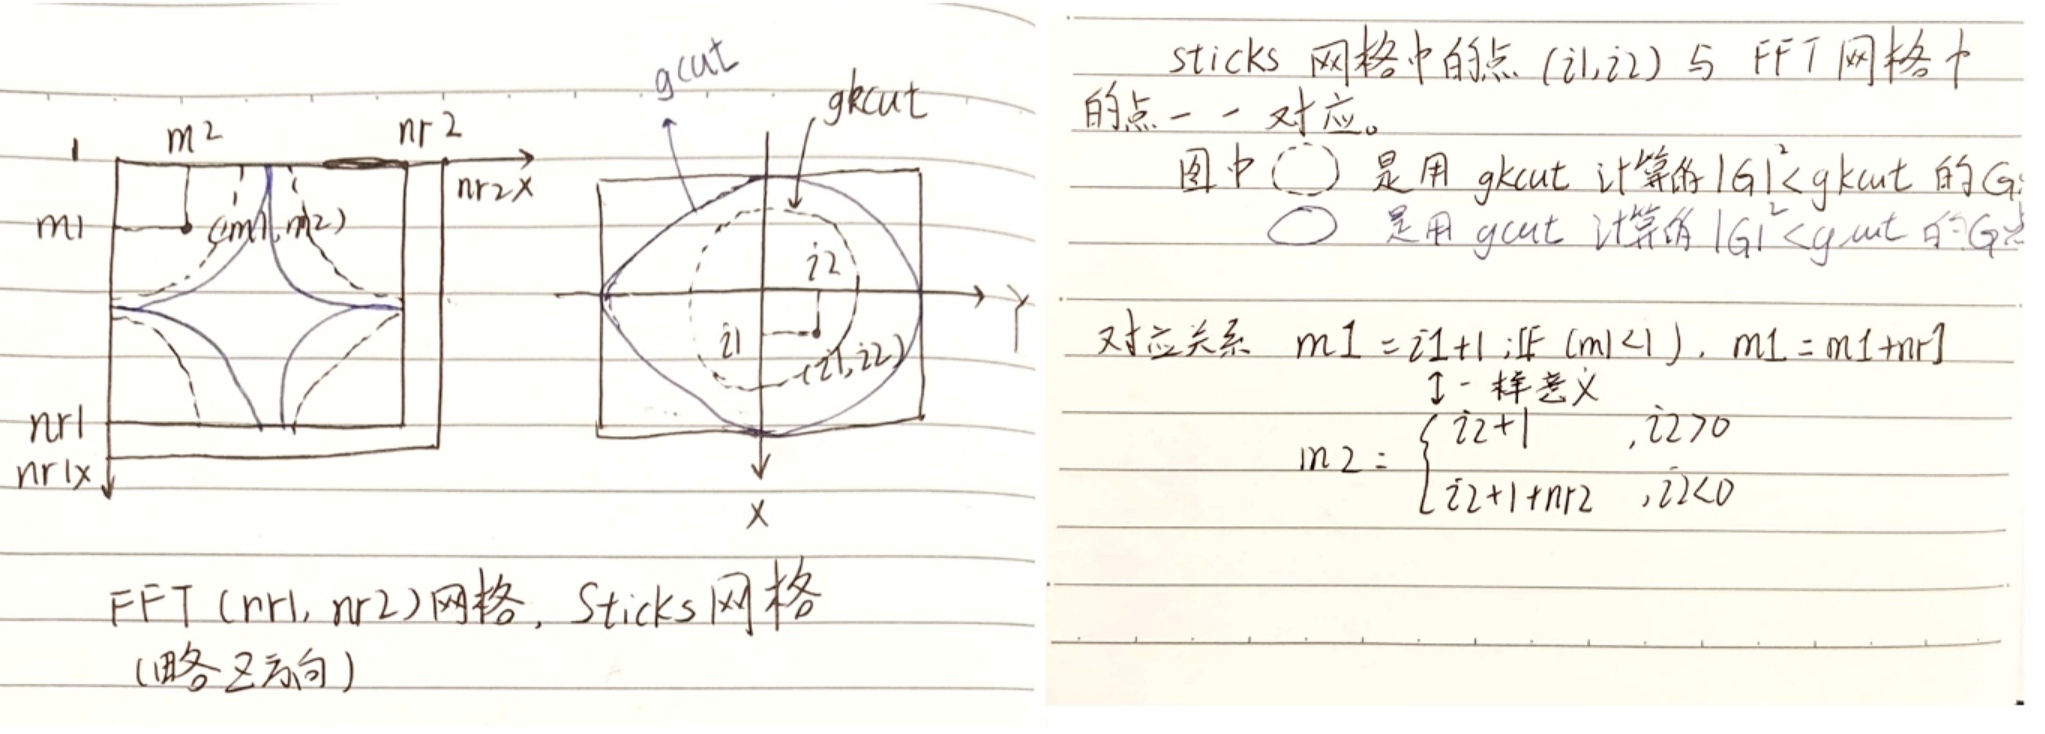 gcut
gkcut
1
m2
nr2
nr2x
m1
(m1,m2)
i2
i1
(i1,i2)
Y
nr1
nr1x
X
FFT (nr1, nr2) 网格, Sticks 网格
(略Z方向)
sticks 网格中的点 (i1,i2) 与 FFT 网格中
的点一一对应。
图中 是用 gkcut 计算的 |G|²<gkcut 的G
是用 gcut 计算的 |G|²<gcut 的G点
对应关系 m1 = i1+1; IF (m1<1), m1=m1+nr1
↕一样意义
m2 = { i2+1 , i2>0
i2+1+nr2 , i2<0